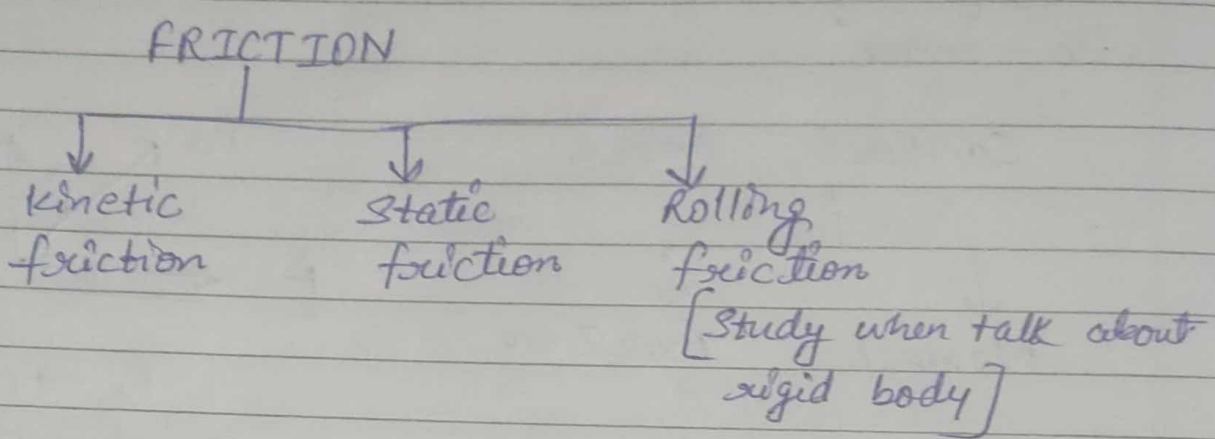 FRICTION
Kinetic friction
Static friction
Rolling friction
[Study when talk about
rigid body]